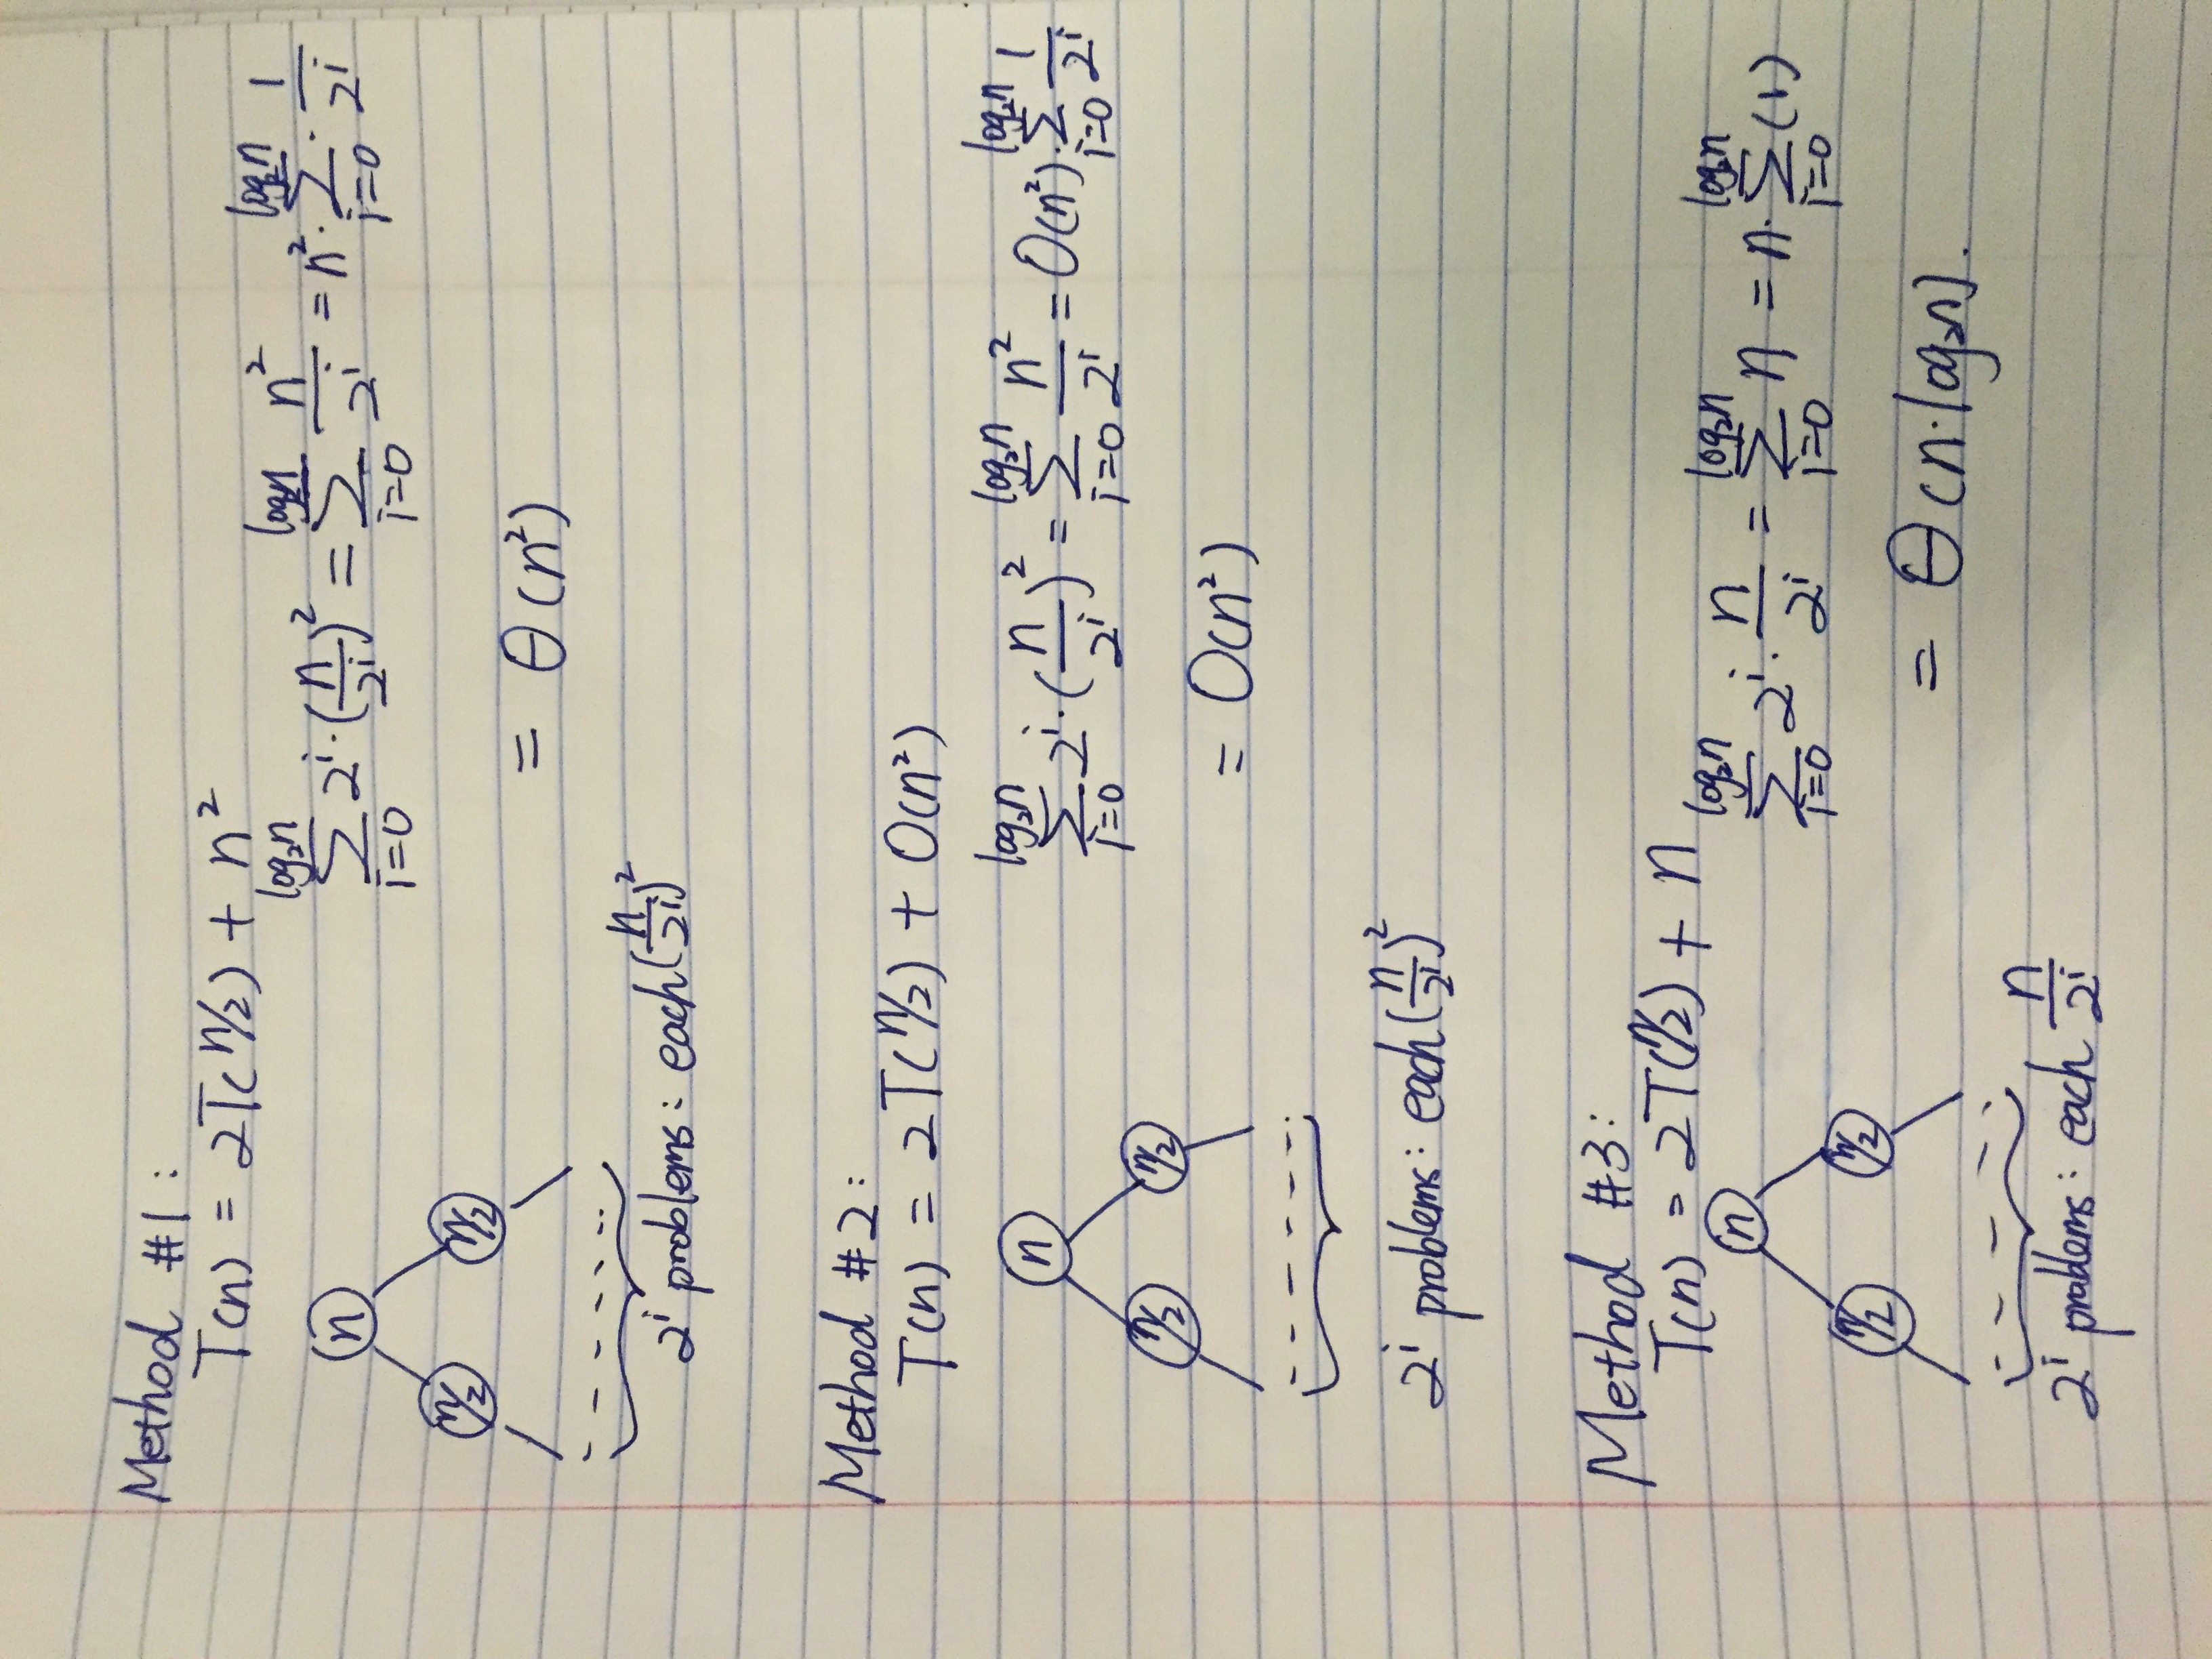 Method #1:
T(n) = 2T(n/2) + n²
n
n/2 n/2
2ⁱ problems: each (n/2ⁱ)²
∑_{i=0}^{log₂n} 2ⁱ·(n/2ⁱ)² = ∑_{i=0}^{log₂n} n²/2ⁱ = n²·∑_{i=0}^{log₂n}·1/2ⁱ
= Θ(n²)
Method #2:
T(n) = 2T(n/2) + O(n²)
n
n/2 n/2
2ⁱ problems: each (n/2ⁱ)²
∑_{i=0}^{log₂n} 2ⁱ·(n/2ⁱ)² = ∑_{i=0}^{log₂n} n²/2ⁱ = O(n²)·∑_{i=0}^{log₂n} 1/2ⁱ
= O(n²)
Method #3:
T(n) = 2T(n/2) + n
n
n/2 n/2
2ⁱ problems: each n/2ⁱ
∑_{i=0}^{log₂n} 2ⁱ·n/2ⁱ = ∑_{i=0}^{log₂n} n = n·∑_{i=0}^{log₂n}(1)
= Θ(n·log₂n).